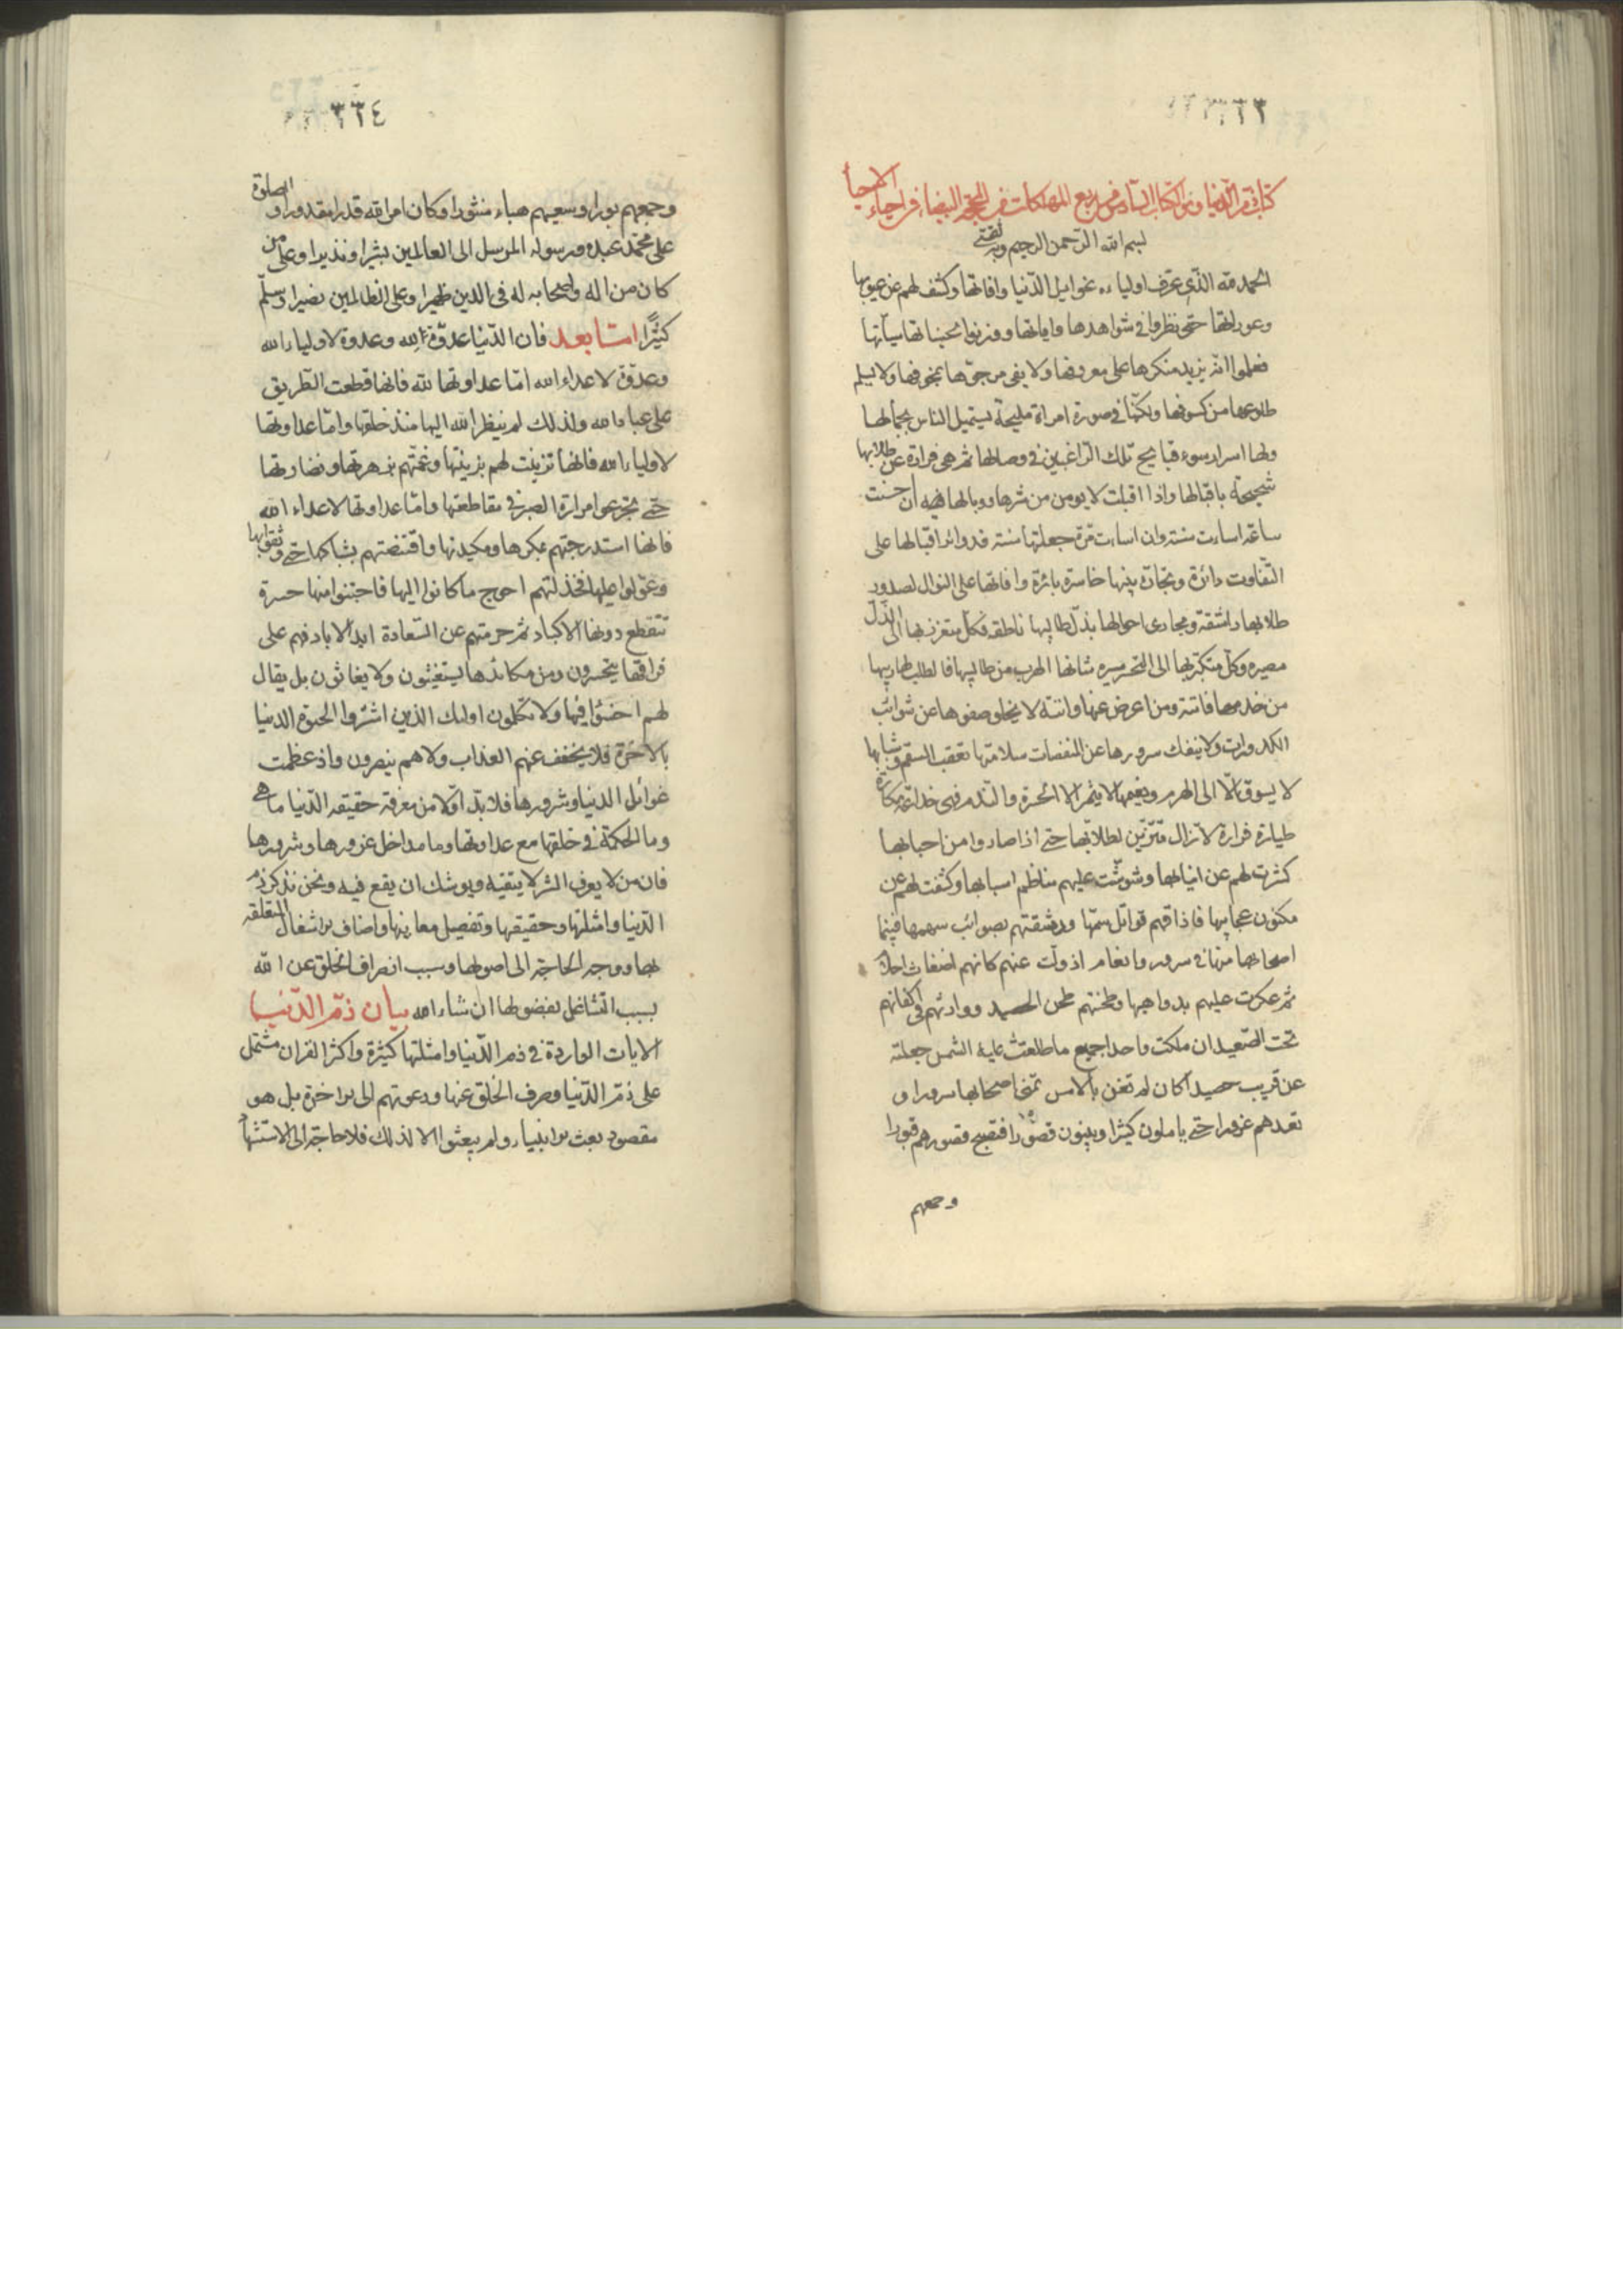 ٣٣٣
كتاب ذم الدنيا وهو الكتاب السادس من ربع المهلكات من المحجة البيضاء في احياء الاحياء
بسم الله الرحمن الرحيم وبه ثقتي
الحمد لله الذى عرف اولياءه غوايل الدنيا وافاتها وكشف لهم عن عيوبها
وعوراتها حتى نظروا في شواهدها واياتها ووزنوا بحسناتها سيآتها
فعلموا انه يزيد منكرها على معروفها ولا يفى مرجوها بمخوفها ولا يسلم
طلوعها من كسوفها ولكنها في صورة امراة مليحة يستميل الناس بجمالها
ولها اسرار سوء قبايح تهلك الراغبين في وصالها ثم هى فرارة عن طلابها
شحيحة باقبالها واذا اقبلت لا يومن من شرها ووبالها ان احسنت
ساعة اساءت سنة وان اساءت مرة جعلتها سنة فدوائر اقبالها على
التقارب دائرة وتجارة بنيها خاسرة بائرة وافاتها على التوالى لصدور
طلابها راشقة ومجارى احوالها بذل طالبيها ناطقة فكل متعزز بها الى الذل
مصيره وكل متكبر بها الى التحسر مسيره شانها الهرب من طالبها والطلب لهاربها
من خدمها فاتته ومن اعرض عنها واتته لا يخلو صفوها عن شوائب
الكدورات ولا ينفك سرورها عن المنغصات سلامتها تعقب السقم وشبابها
لا يسوق الا الى الهرم ونعيمها لا يثمر الا الحسرة والندم فهى خداعة مكارة
طيارة فرارة لا تزال تتزين لطلابها حتى اذا صاروا من احبابها
كشرت لهم عن انيابها وشوشت عليهم مناظم اسبابها وكشفت لهم عن
مكنون عجايبها فاذاقتهم قواتل سمها ورشقتهم بصوائب سهمها فبينما
اصحابها منها في سرور وانعام اذ ولت عنهم كانهم اضغاث احلام
ثم عكرت عليهم بدواهيها فطحنتهم طحن الحصيد ووارتهم فى اكفانهم
تحت الصعيد ان ملكت واحدا جميع ما طلعت عليه الشمس جعلته
عن قريب حصيدا كان لم تغن بالامس تمنى اصحابها سرورا و
تعدهم غرورا حتى ياملون كثيرا ويبنون قصورا فتصبح قصورهم قبورا
وجمعهم
٣٣٤
وجمعهم بورا وسعيهم هباء منثورا وكان امر الله قدرا مقدورا والصلوة
على محمد عبده ورسوله المرسل الى العالمين بشيرا ونذيرا وعلى من
كان من اله واصحابه له فى الدين ظهيرا وعلى الظالمين نصيرا وسلم
كثيرا اما بعد فان الدنيا عدوة لله وعدوة لاولياء الله
وعدوة لاعداء الله اما عداوتها لله فانها قطعت الطريق
على عباد الله ولذلك لم ينظر الله اليها منذ خلقها واما عداوتها
لاولياء الله فانها تزينت لهم بزينتها وعمتهم بزهرتها ونضارتها
حتى تجرعوا مرارة الصبر في مقاطعتها واما عداوتها لاعداء الله
فانها استدرجتهم بمكرها ومكيدتها واقتنصتهم بشباكها حتى وثقوا بها
وعولوا عليها فخذلتهم احوج ما كانوا اليها فاجتنوا منها حسرة
تتقطع دونها الاكباد ثم حرمتهم عن السعادة ابد الاباد فهم على
فراقها يتحسرون ومن مكائدها يستغيثون ولا يغاثون بل يقال
لهم اخسؤا فيها ولا تكلمون اولئك الذين اشتروا الحيوة الدنيا
بالاخرة فلا يخفف عنهم العذاب ولا هم ينصرون واذ عظمت
غوائل الدنيا وشرورها فلا بد اولا من معرفة حقيقة الدنيا ما هى
وما الحكمة في خلقها مع عداوتها وما مداخل غرورها وشرورها
فان من لا يعرف الشر لا يتقيه ويوشك ان يقع فيه ونحن نذكر ذم
الدنيا وامثلتها وحقيقتها وتفصيل معانيها واصناف الاشغال المتعلقة
بها ووجه الحاجة الى اصولها وسبب انصراف الخلق عن الله
بسبب التشاغل بفضولها ان شاء الله بيان ذم الدنيا
الايات الواردة في ذم الدنيا وامثلتها كثيرة واكثر القران مشتمل
على ذم الدنيا وصرف الخلق عنها ودعوتهم الى الاخرة بل هو
مقصود بعث الانبياء ولم يبعثوا الا لذلك فلا حاجة الى الاستشهاد